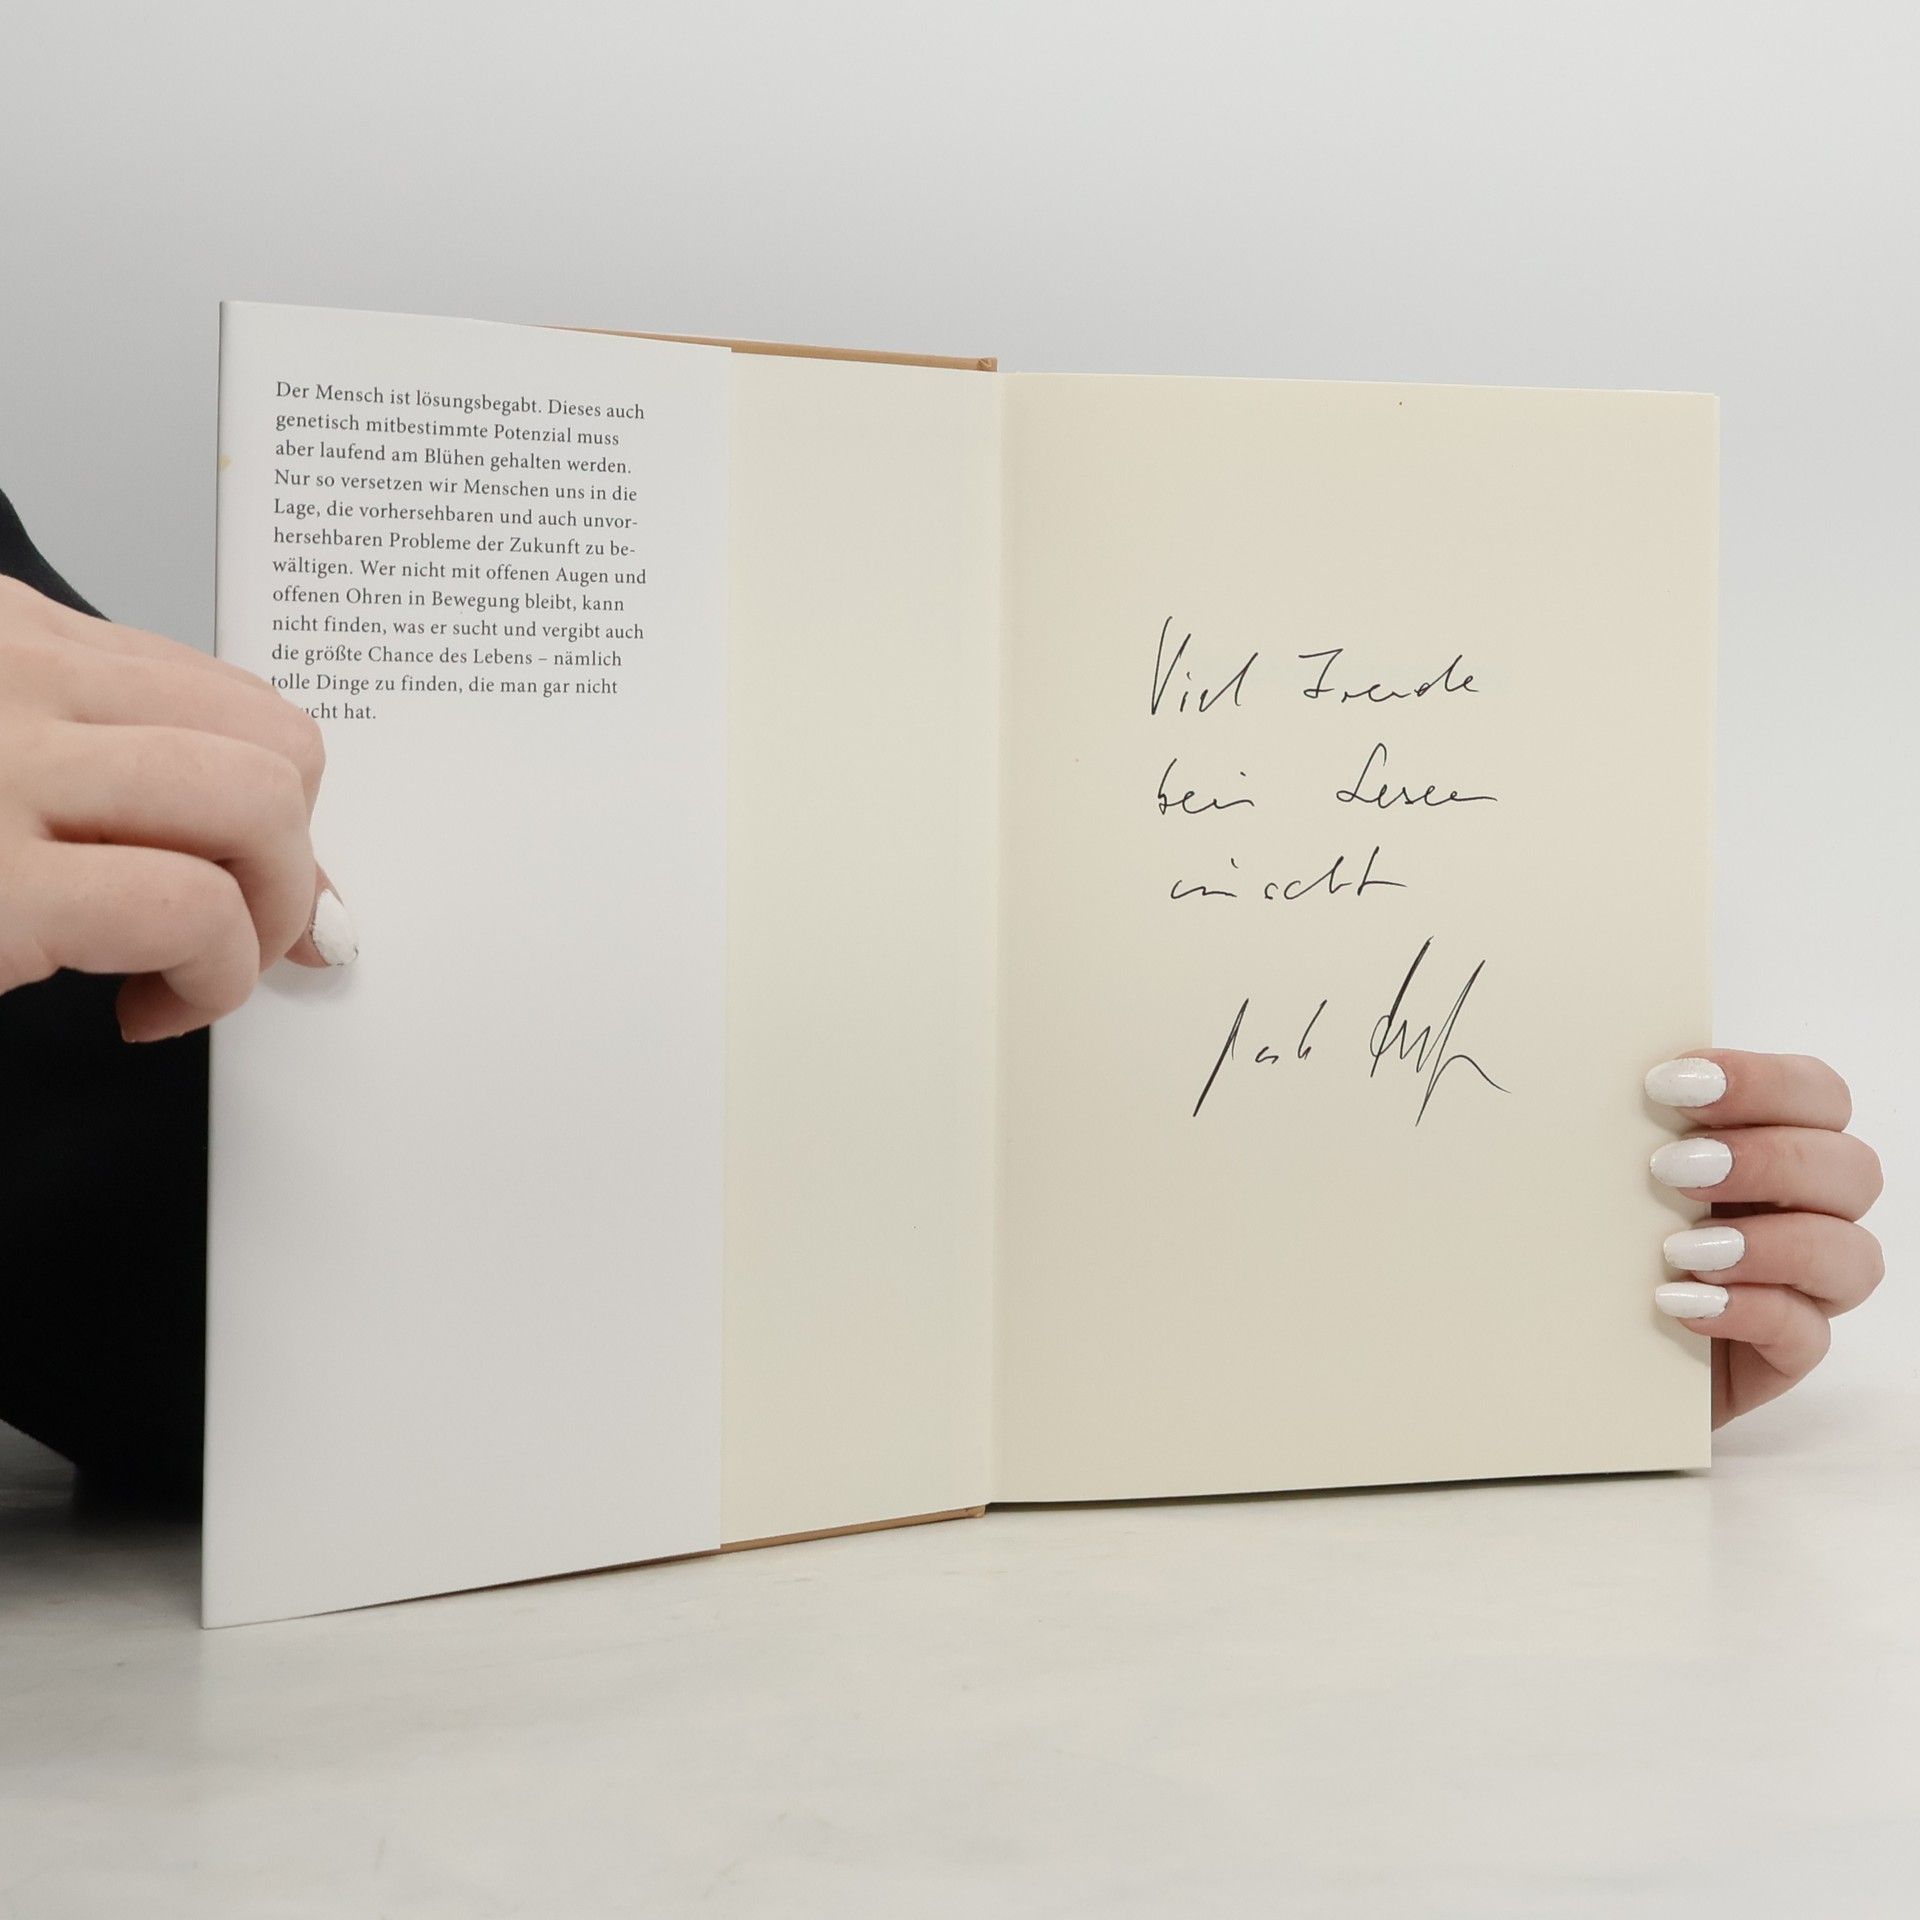 Der Mensch ist lösungsbegabt. Dieses auch
genetisch mitbestimmte Potenzial muss
aber laufend am Blühen gehalten werden.
Nur so versetzen wir Menschen uns in die
Lage, die vorhersehbaren und auch unvor-
hersehbaren Probleme der Zukunft zu be-
wältigen. Wer nicht mit offenen Augen und
offenen Ohren in Bewegung bleibt, kann
nicht finden, was er sucht und vergibt auch
die größte Chance des Lebens – nämlich
tolle Dinge zu finden, die man gar nicht
ucht hat.
Viel Freude
beim Lesen
wünscht